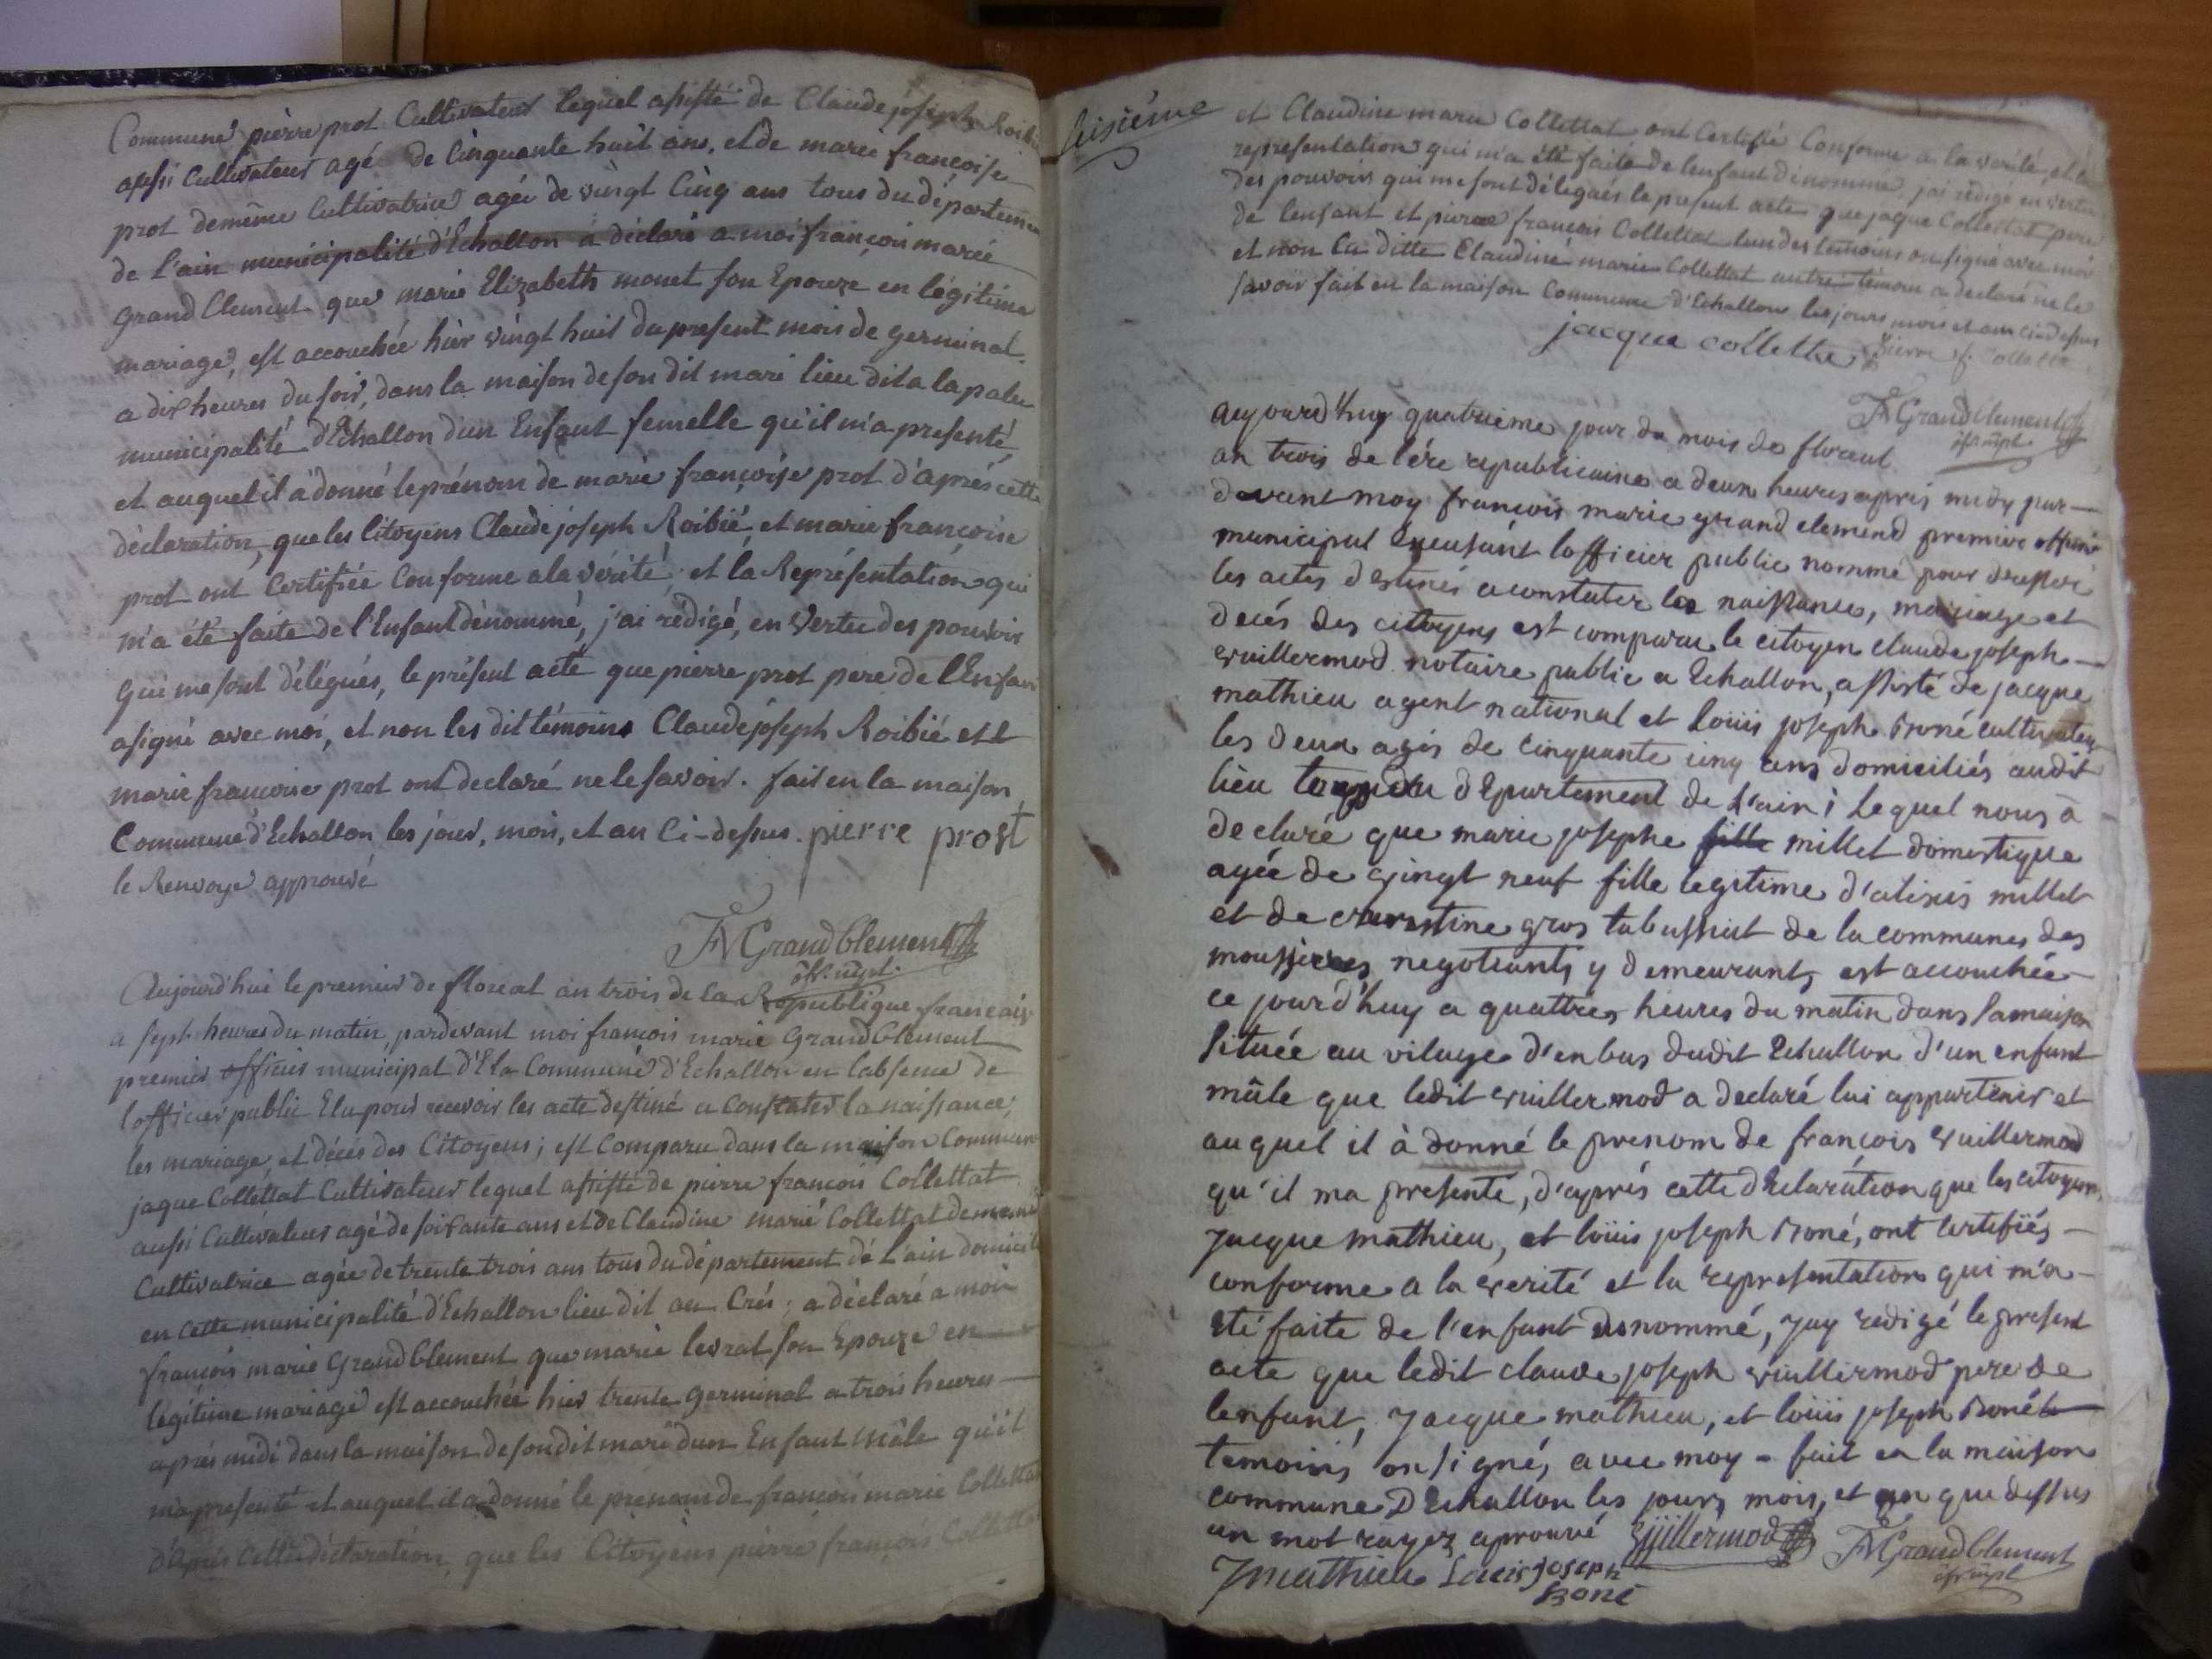 Commune pierre prot Cultivateur lequel assisté de Claude joseph Roibié
aussi Cultivateur agé de Cinquante huit ans, et de marie françoise
prot demême Cultivatrice agée de vingt Cinq ans tous du département
de l'ain municipalité d'Echallon a déclaré a moi françois marie
Grand Clement que marie Elizabeth monet son Epouze en légitime
mariage, est accouchée hièr vingt huit du present mois de germinal
a dix heures du soir, dans la maison de son dit mari lieu dit a la palu
municipalité d'Echallon d'un Enfant femelle qu'il m'a presenté
et auquel il à donné le prénom de marie françoise prot d'aprés cette
déclaration, que les Citoyens Claude joseph Roibié et marie françoise
prot ont Certifiée Conforme a la vérité et la Représentation qui
m'a été faite de l'Enfant dénommé, j'ai rédigé, en Vertu des pouvoirs
qui me sont délégués, le présent acte que pierre prot pere de l'Enfant
a signé avec moi, et non les dit témoins Claude joseph Roibié et
marie françoise prot ont declaré ne le savoir. fait en la maison
Commune d'Echallon les jour, mois, et an Ci-dessus. pierre prost
le Renvoye approuvé
Grand Clement
Aujourd'hui le premier de floreal an trois de la Republique francaise
a sept heures du matin, pardevant moi francois marie Grand Clement
premier officier municipal d'E la Commune d'Echallon en l'absence de
l'officier public Elu pour recevoir les acte destiné a Constater la naissance,
les mariage, et décès des Citoyens; est Comparu dans la maison Commune
jaque Collettat Cultivateur lequel assisté de pierre francois Collettat
aussi Cultivateur agé de soixante ans et de Claudine marie Collettat demême
Cultivatrice agée de trente trois ans tous du département de L'ain domicilié
en cette municipalité d'Echallon lieu dit au Crés; a déclaré a moi
françois marie Grand Clement que marie levrat son Epouze en
légitime mariage est accouchée hier trente germinal a trois heures
aprés midi dans la maison de son dit mari d'un Enfant mâle qu'il
m'a presenté et auquel il a donné le prenom de françois marie Collettat
d'après cette déclaration, que les Citoyens pierre françois Collettat
seisième
et Claudine marie Collettat ont Certifié Conforme a la verité, et la
representation qui m'a été faite de l'enfant dénommé, j'ai rédigé en vertu
des pouvoirs qui me sont délegués le present acte que jaque Collettat pere
de l'enfant et pierre françois Collettat l'un des temoins on signé avec moi
et non la ditte Claudine marie Collettat autre témoin a declaré ne le
savoir fait en la maison Commune d'Echallon les jours mois et an ci dessus
jacque collettaz pierre f. Collettaz
Grand Clement
aujourd'huy quatrieme jour du mois de floreal
an trois de l'ére republicaine a deux heures aprés midy par
devant moy francois marie grand clemend premire officier
municipal Excusant l'officier public nommé pour dresser
les actes destinés a constater les naissance, mariage et
decés des citoyens est comparu le citoyen claude joseph
vuillermod notaire public a Echallon, assisté de jacque
mathieu agent national et Loüis joseph Boné cultivateur
les deux agés de cinquante cinq ans domiciliés audit
lieu du dEpartement de L'ain; Lequel nous à
declaré que marie josephe fille millet domestique
agée de vingt neuf fille legitime d'alixis millet
et de gros tabussiat de la commune des
moussieres negotiants y demeurants est accouchée
ce jourd'huy a quattres heures du matin dans sa maison
située au vilage d'en bas dudit Echallon d'un enfant
mâle que ledit vuillermod a declaré lui appartenir et
auquel il à donné le prenom de françois vuillermod
qu'il ma presenté, d'aprés cette dEclaration que les citoyens
jacque mathieu, et loüis joseph Boné, ont certifiés
conforme a la verité et la representation qui m'a
eté faite de l'enfant denommé, jay redigé le present
acte que ledit claude joseph vuillermod pere de
lenfant, jacque mathieu, et loüis joseph Boné
temoins on signé, avec moy - fait en la maison
commune D'Echallon les jours mois, et an que dessus
un mot rayez aprouvé Vüillermod Grand Clement
J mathieu Louis joseph
Boné